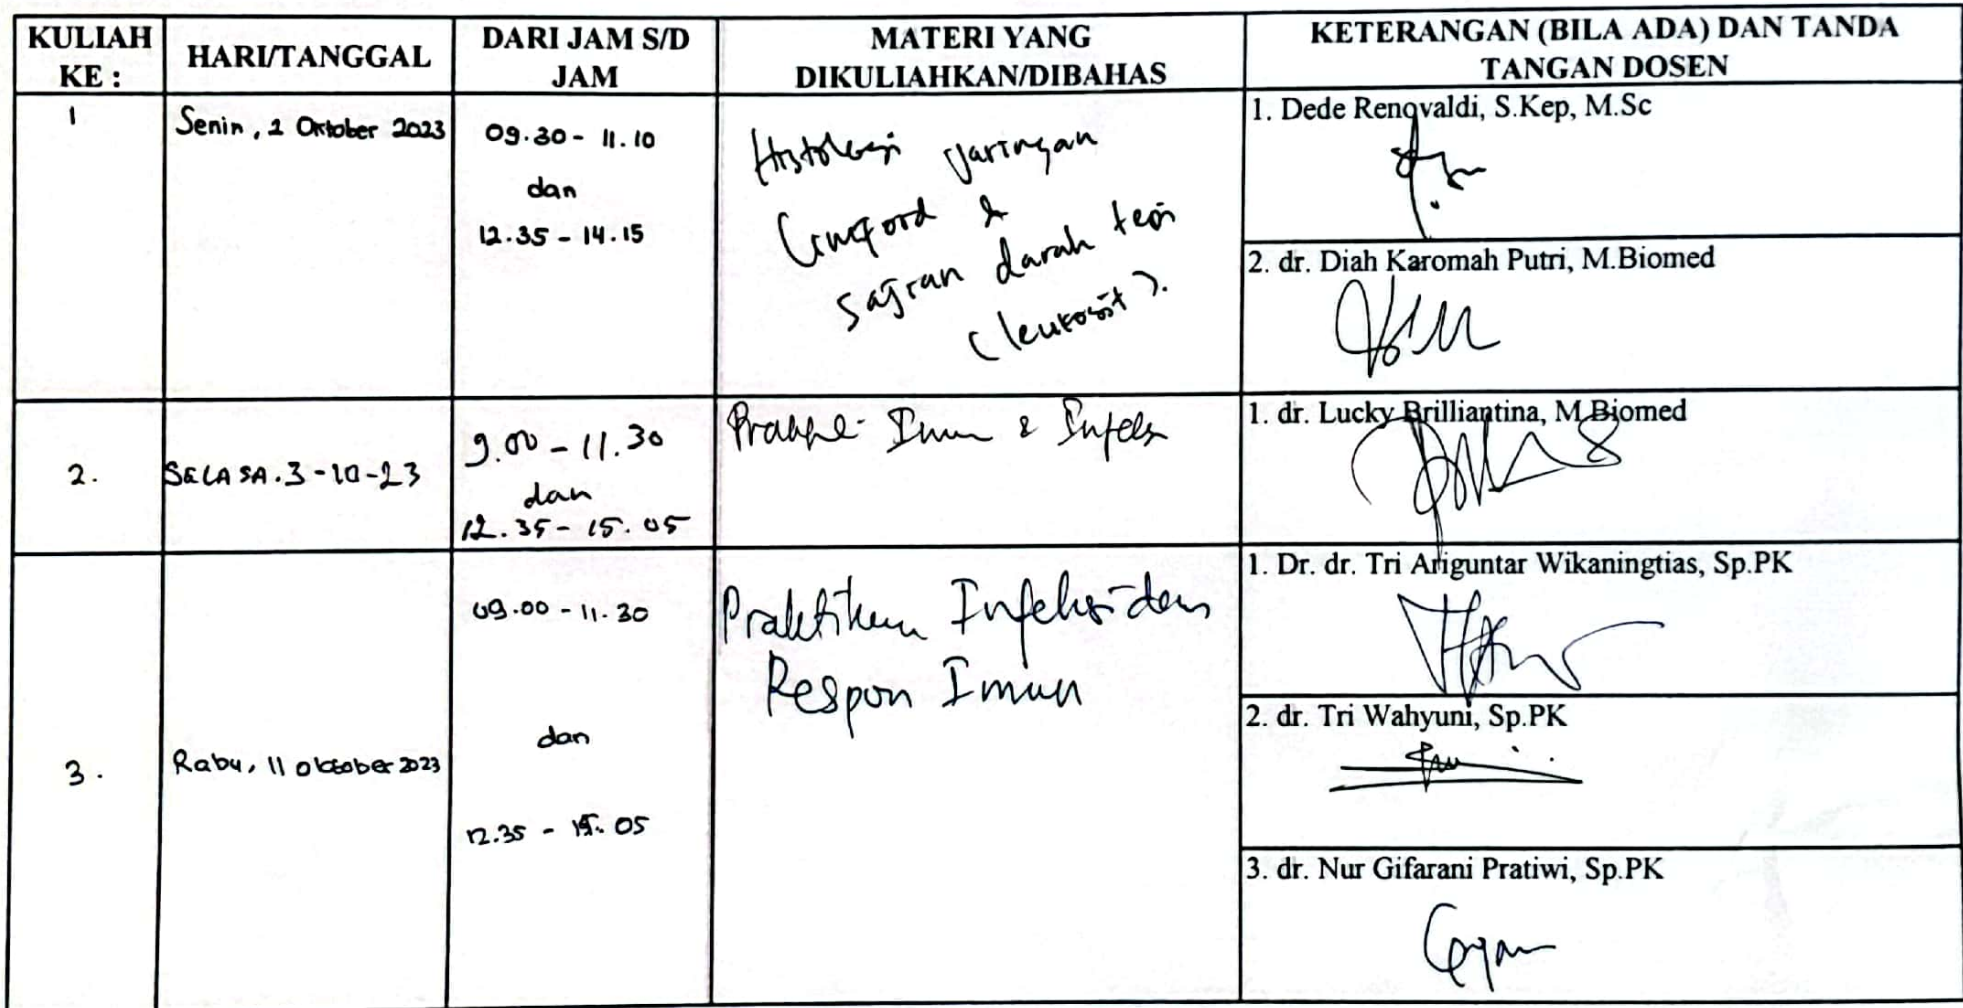 KULIAH KE :
HARI/TANGGAL
DARI JAM S/D JAM
MATERI YANG DIKULIAHKAN/DIBAHAS
KETERANGAN (BILA ADA) DAN TANDA TANGAN DOSEN
1
Senin, 2 Oktober 2023
09.30 - 11.10
dan
12.35 - 14.15
Histologi jaringan
limfoid &
sajian darah tepi
(leukosit).
1. Dede Renovaldi, S.Kep, M.Sc
2. dr. Diah Karomah Putri, M.Biomed
2.
SELASA. 3-10-23
9.00 - 11.30
dan
12.35 - 15.05
Imun & Infeksi
1. dr. Lucky Brilliantina, M.Biomed
3.
Rabu, 11 oktober 2023
09.00 - 11.30
dan
12.35 - 15.05
Praktikum Infeksi dan
Respon Imun
1. Dr. dr. Tri Ariguntar Wikaningtias, Sp.PK
2. dr. Tri Wahyuni, Sp.PK
3. dr. Nur Gifarani Pratiwi, Sp.PK